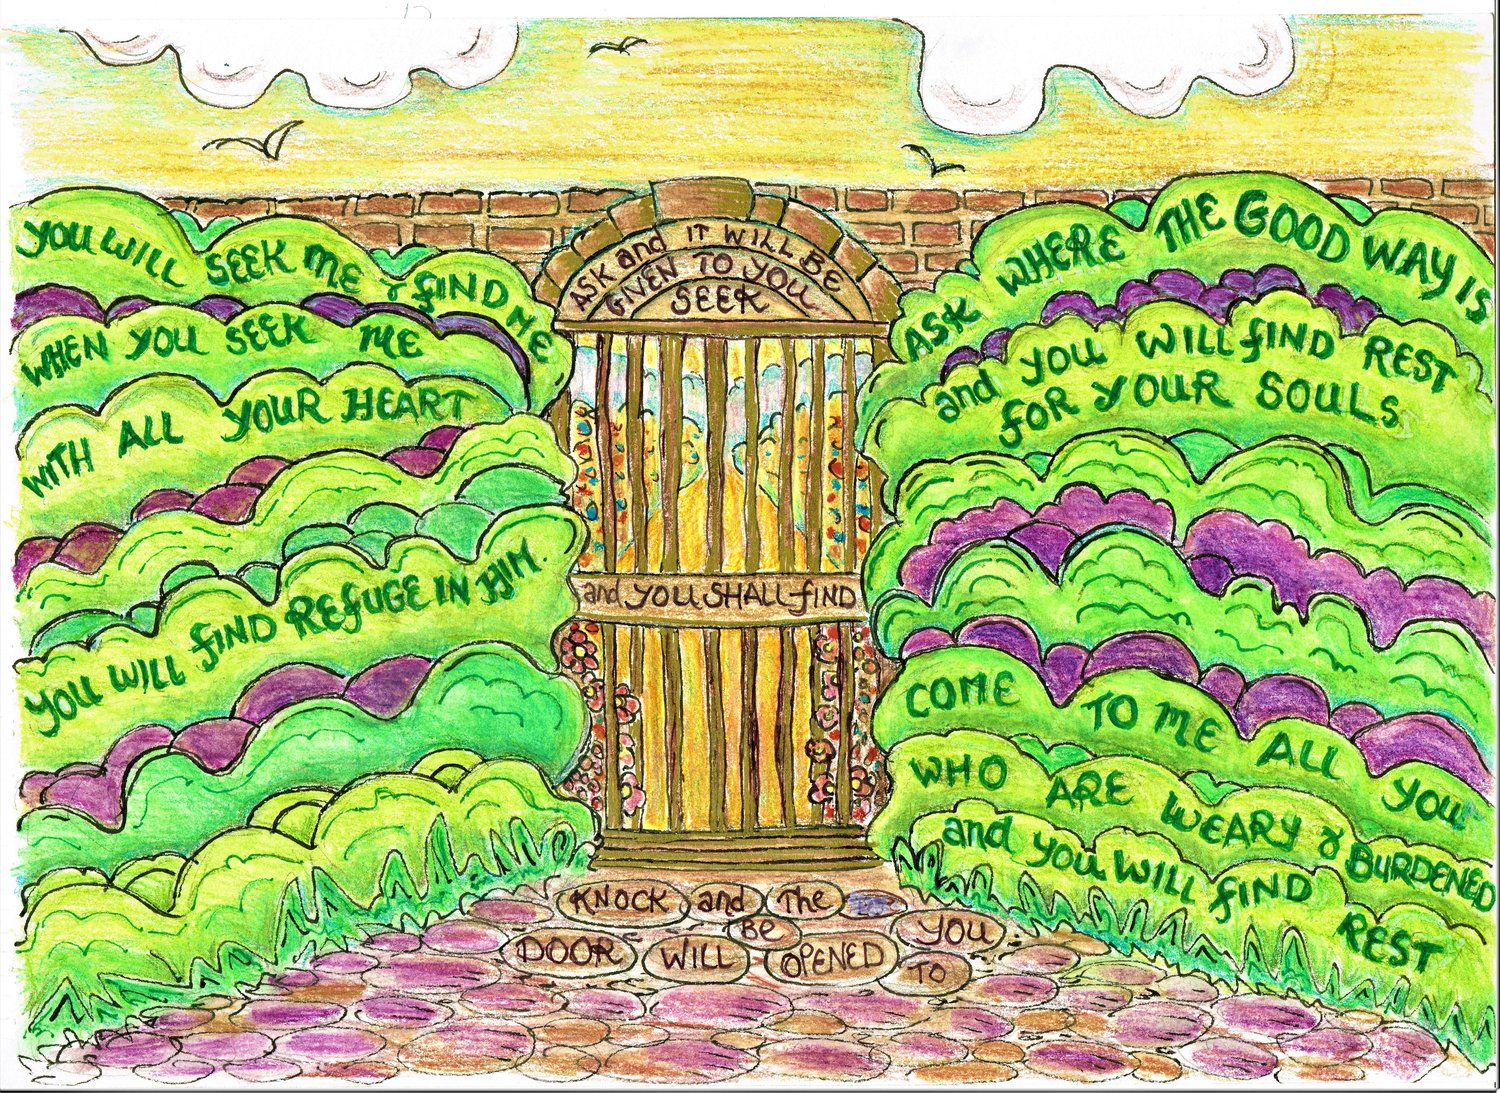 YOU WILL SEEK ME & FIND ME
WHEN YOU SEEK ME
WITH ALL YOUR HEART
YOU WILL FIND REFUGE IN HIM.
ASK and IT WILL BE
GIVEN TO YOU
SEEK
and YOU SHALL FIND
KNOCK and THE
DOOR WILL BE OPENED TO YOU
ASK WHERE THE GOOD WAY IS
and YOU WILL FIND REST
FOR YOUR SOULS
COME TO ME ALL YOU
WHO ARE WEARY & BURDENED
and YOU WILL FIND REST